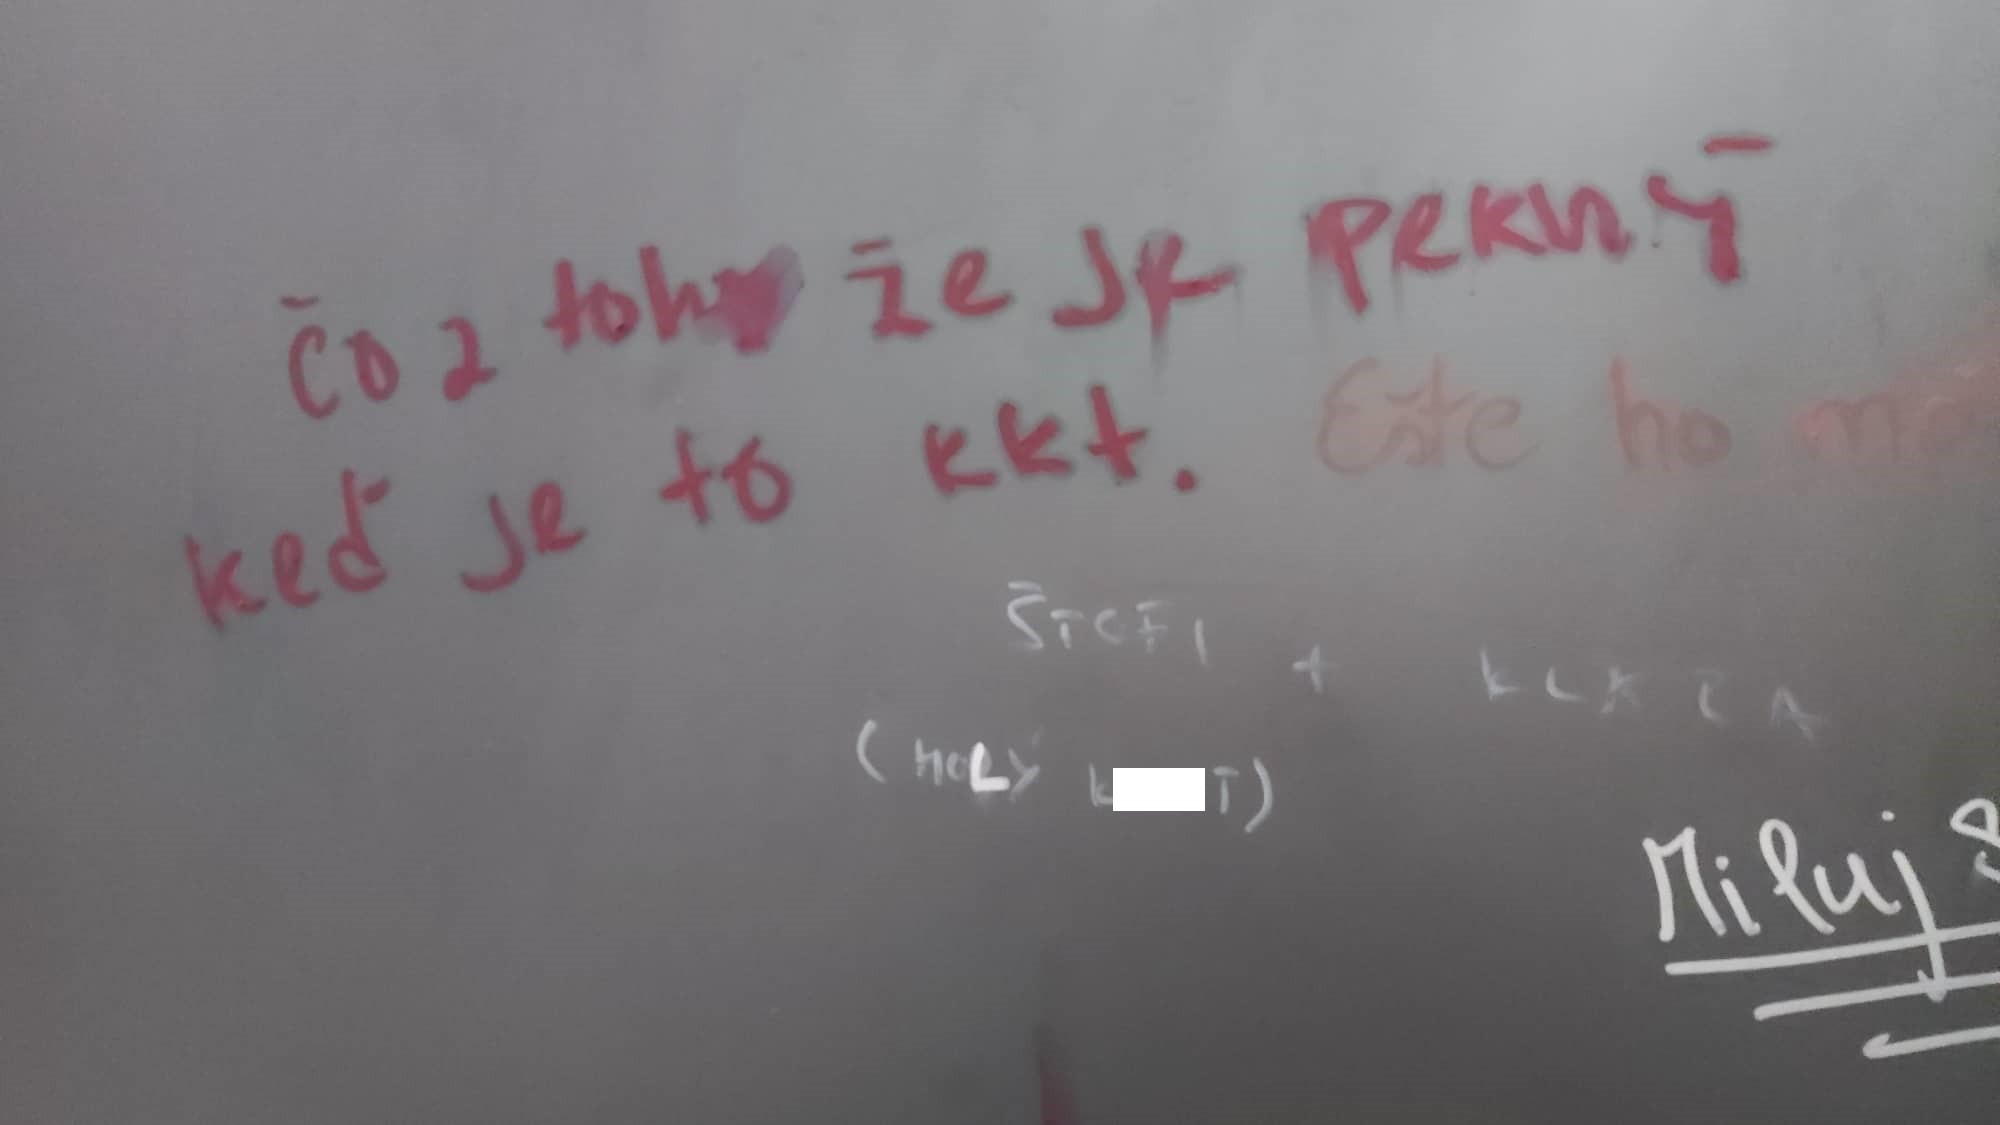 Čo z toho že je pekný
keď je to kkt. Ešte ho
ŠTEFI +
(HOLÝ K T)
Miluj